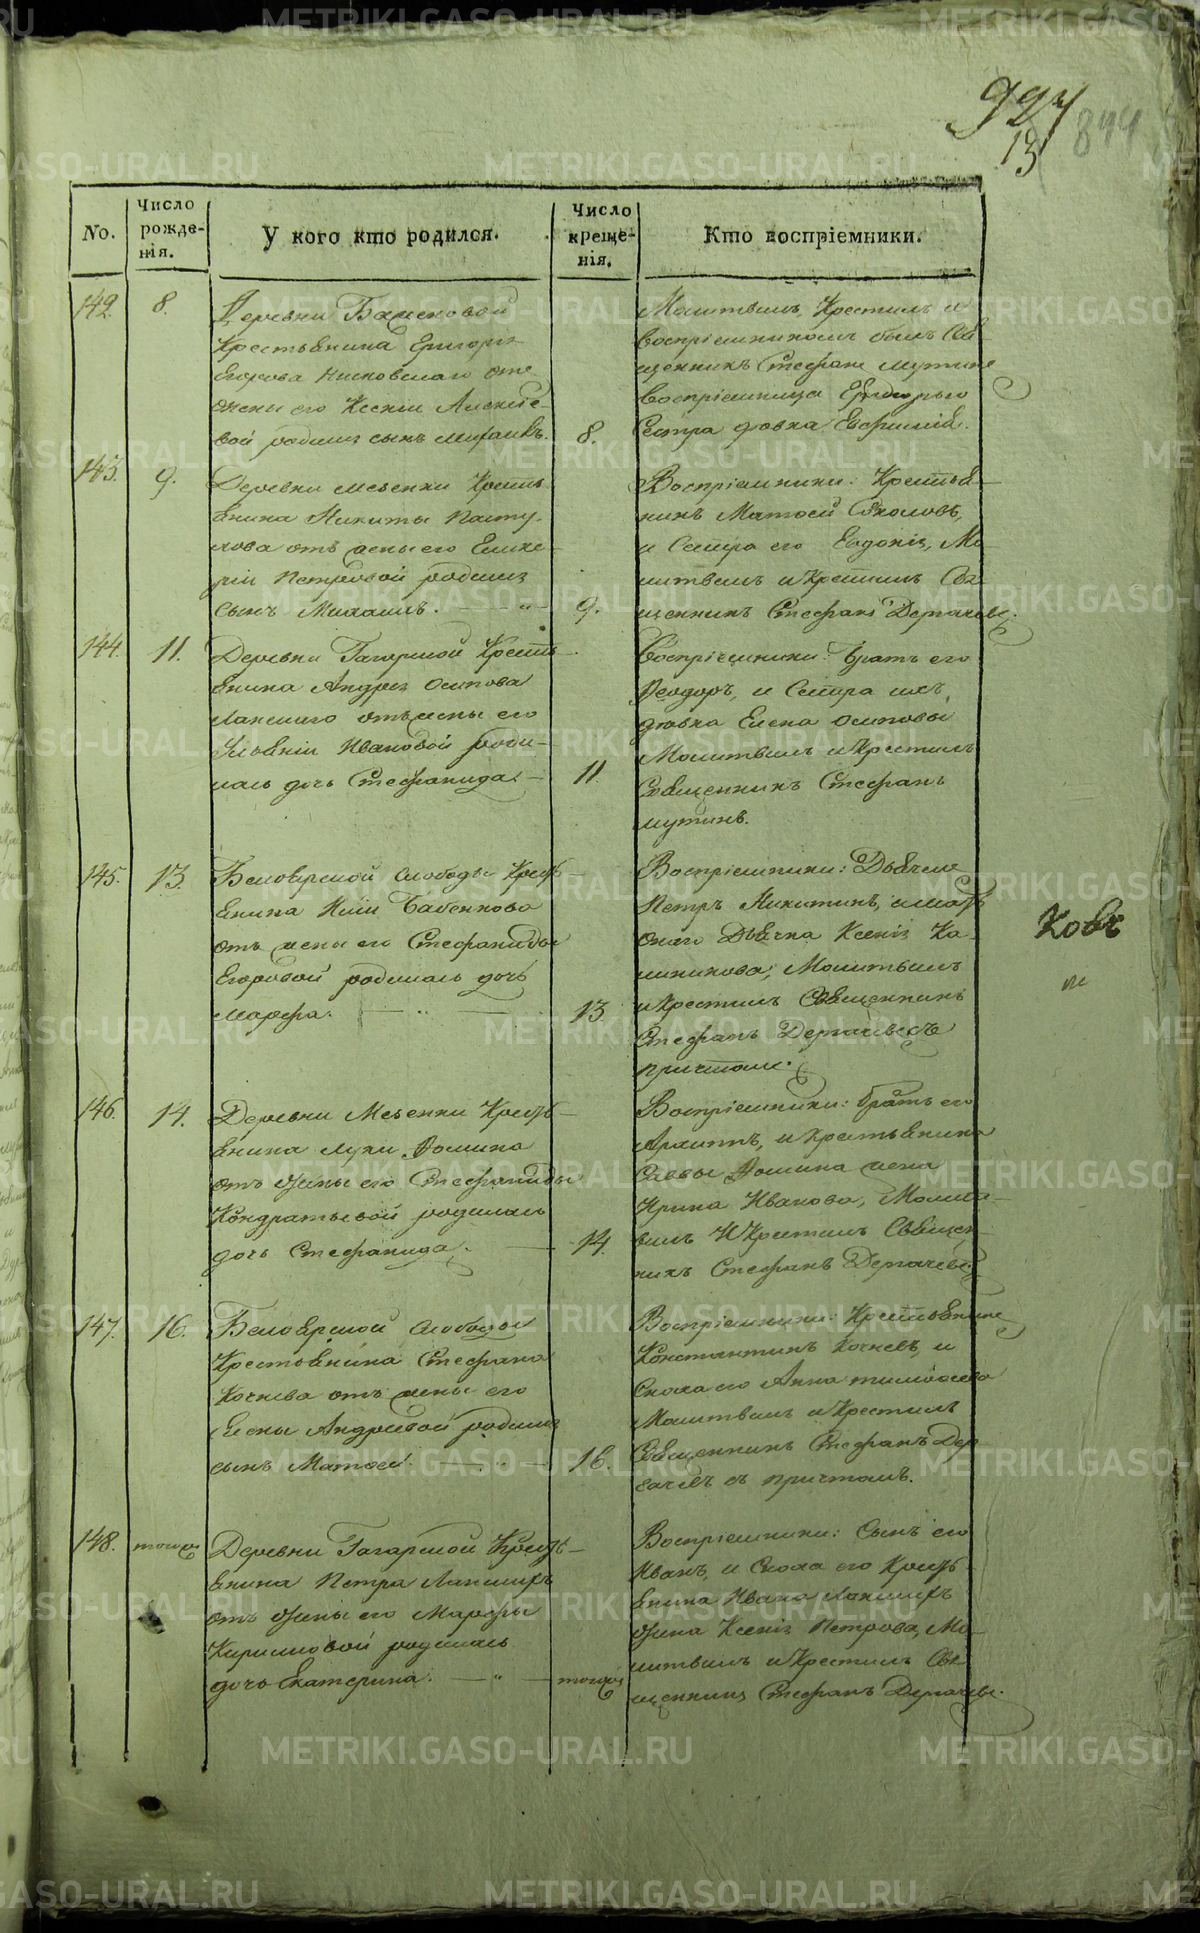 927
13
844
No.
Число рожде-
нія.
У кого кто родился.
Число
креще-
нія.
Кто воспріемники.
142. 8.
Деревни Баженовой
Крестьянина Григорія
Егорова
жены его Ксеніи Алексѣе-
вой родился сынъ
8.
Молитвилъ, Крестилъ и
воспріемникомъ былъ Свя
щенникъ Стефанъ Мутинъ
Воспріемница
Сестра дѣвка Евфимія.
143. 9.
Деревни Мезенки Кресть
янина Никиты Пасту-
хова отъ жены его Глике-
ріи Петровой родился
сынъ Михаилъ.
9.
Воспріемники: Крестья-
нинъ Матвей Соколовъ,
и Сестра его Евдокія, Мо
литвилъ и Крестилъ Свя
щенникъ Стефанъ Дерпачевъ.
144. 11.
Деревни Гагарской Кресть-
янина Андрея Осипова
отъ жены его
Ивановой роди-
лась дочь Стефанида.
11.
Воспріемники: Братъ его
Феодоръ, и Сестра ихъ
дѣвка Елена Осиповы
Молитвилъ и Крестилъ
Священникъ Стефанъ
Мутинъ.
145. 13.
Белоярской слободы Кресть-
янина
отъ жены его Стефаниды
Егоровой родилась дочь
Марфа.
13
Воспріемники: Дьячекъ
Петръ Никитинъ,
онаго Дьячка Ксенія Ка-
линикова, Молитвилъ
и Крестилъ Священникъ
Стефанъ Дерпачевъ съ
причтомъ.
146. 14.
Деревни Мезенки Кресть-
янина Луки Фомина
отъ жены его Стефаниды
Кондратьевой родилась
дочь Стефанида.
14.
Воспріемники: братъ его
Архипъ, и крестьянина
Саввы Фомина жена
Ирина Иванова, Молит-
вилъ И Крестилъ Священ-
никъ Стефанъ Дерпачевъ.
147. 16.
Белоярской слободы
Крестьянина Стефана
Кочнева отъ жены его
Елены Андреевой родился
сынъ Матвей.
16.
Воспріемники: Крестьянинъ
Константинъ Кочневъ, и
Сноха его Анна Тимофеева
Молитвилъ и Крестилъ
Священникъ Стефанъ Дер
пачевъ съ причтомъ.
148. тогожъ
Деревни Гагарской Кресть-
янина Петра
отъ жены его Марфы
Кириловой родилась
дочь Екатерина.
тогожъ
Воспріемники: Сынъ его
Иванъ, и Сноха его Кресть
янина Ивана
жена Ксенія Петрова, Мо-
литвилъ и Крестилъ Свя
щенникъ Стефанъ Дерпачевъ.
METRIKI.GASO-URAL.RU